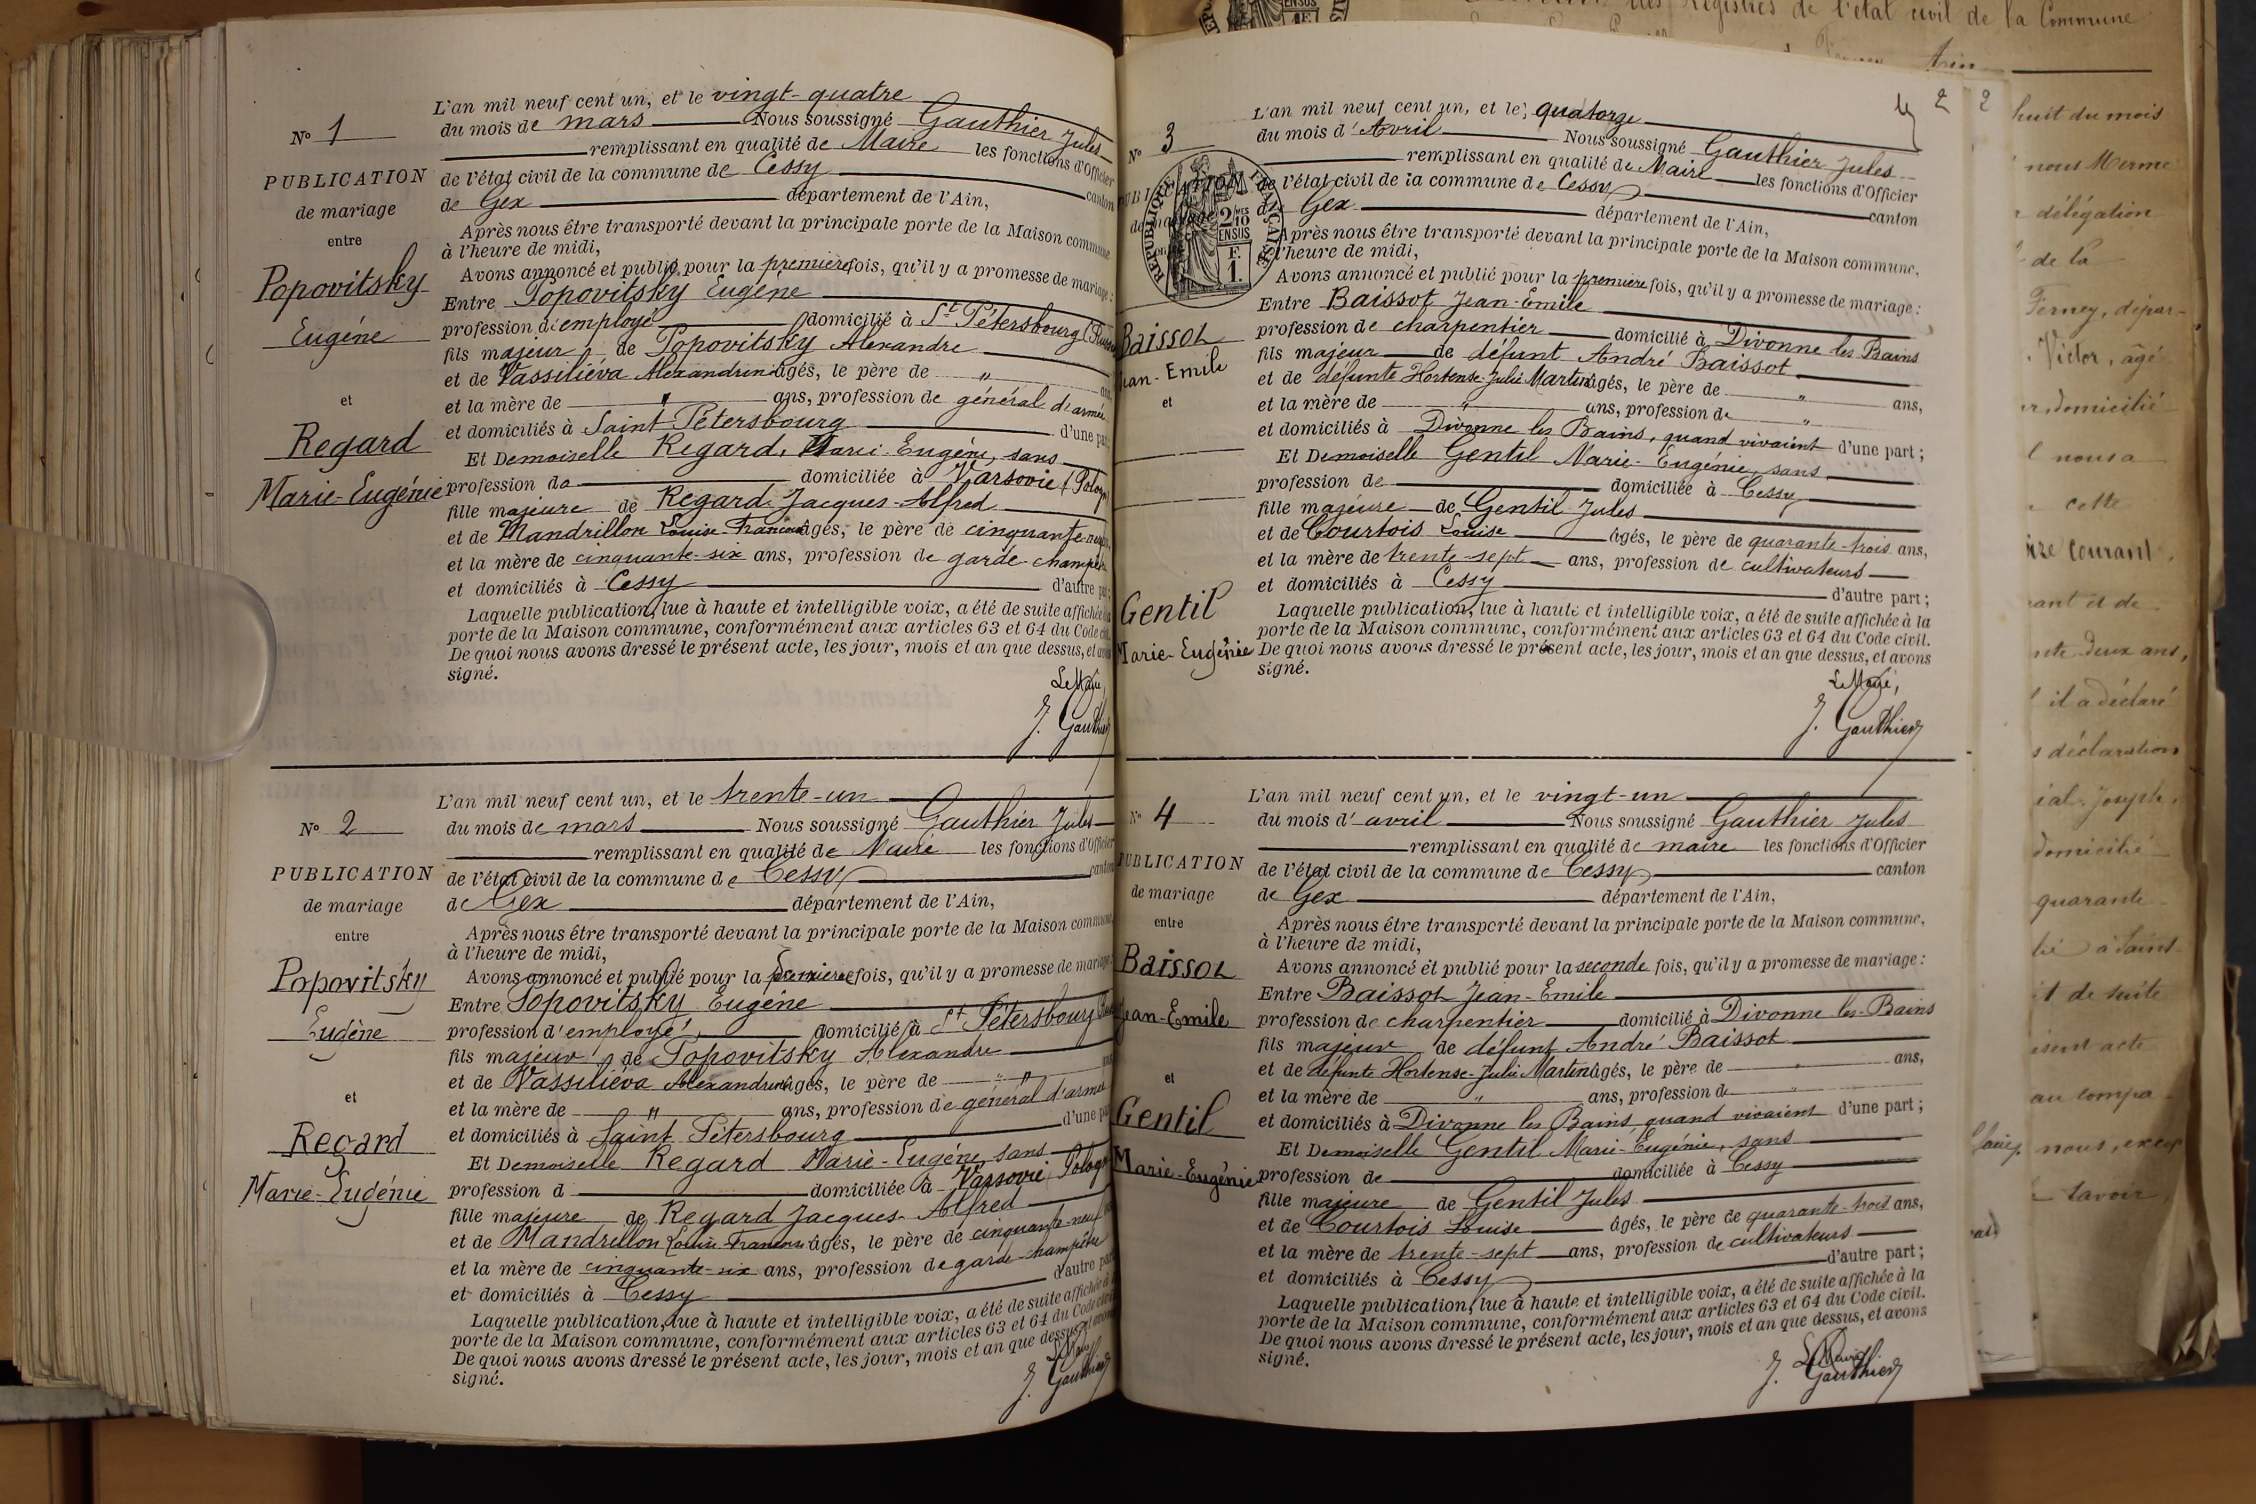 N° 1
PUBLICATION
de mariage
entre
Popovitsky
Eugéne
et
Regard
Marie-Eugénie
L'an mil neuf cent un, et le vingt-quatre
du mois de mars Nous soussigné Gauthier Jules
remplissant en qualité de Maire les fonctions d'Officier
de l'état civil de la commune de Cessy canton
de Gex département de l'Ain,
Après nous être transporté devant la principale porte de la Maison commune
à l'heure de midi,
Avons annoncé et publié pour la première fois, qu'il y a promesse de mariage:
Entre Popovitsky Eugéne
profession d'employé domicilié à St Pétersbourg (Russie
fils majeur de Popovitsky Alexandre
et de Vassiliéva Alexandrine âgés, le père de " ans,
et la mère de " ans, profession de général d'armée
et domiciliés à Saint-Pétersbourg d'une part
Et Demoiselle Regard, Marie-Eugénie, sans
profession de domiciliée à Varsovie (Pologne
fille majeure de Regard Jacques-Alfred
et de Mandrillon Louise-Francoise âgés, le père de cinquante-neuf
et la mère de cinquante-six ans, profession de garde-champêtre
et domiciliés à Cessy d'autre part;
Laquelle publication, lue à haute et intelligible voix, a été de suite affichée à la
porte de la Maison commune, conformément aux articles 63 et 64 du Code civil.
De quoi nous avons dressé le présent acte, les jour, mois et an que dessus, et avons
signé.
Le Maire,
J. Gauthier
N° 2
PUBLICATION
de mariage
entre
Popovitsky
Eugène
et
Regard
Marie-Eugénie
L'an mil neuf cent un, et le trente-un
du mois de mars Nous soussigné Gauthier Jules
remplissant en qualité de Maire les fonctions d'Officier
de l'état civil de la commune de Cessy canton
de Gex département de l'Ain,
Après nous être transporté devant la principale porte de la Maison commune
à l'heure de midi,
Avons annoncé et publié pour la fois, qu'il y a promesse de mariage:
Entre Popovitsky Eugéne
profession d'employé domicilié à St Pétersbourg
fils majeur de Popovitsky Alexandre
et de Vassiliéva Alexandrine âgés, le père de " ans
et la mère de " ans, profession de général d'armée
et domiciliés à Saint Pétersbourg d'une part
Et Demoiselle Regard Marie-Eugénie, sans
profession d domiciliée à Varsovie Pologne
fille majeure de Regard Jacques-Alfred
et de Mandrillon Louise Francoise âgés, le père de cinquante-neuf
et la mère de cinquante-six ans, profession de garde-champêtre
et domiciliés à Cessy d'autre part
Laquelle publication, lue à haute et intelligible voix, a été de suite affichée à la
porte de la Maison commune, conformément aux articles 63 et 64 du Code civil
De quoi nous avons dressé le présent acte, les jour, mois et an que dessus, et avons
signé.
Le Maire
J. Gauthier
2
N° 3
PUBLICATION
de mariage
RÉPUBLIQUE FRANÇAISE
2/10 EN SUS
F.
1.
Baissot
Jean-Emile
et
Gentil
Marie-Eugénie
L'an mil neuf cent un, et le quatorze
du mois d'Avril Nous soussigné Gauthier Jules
remplissant en qualité de Maire les fonctions d'Officier
de l'état civil de la commune de Cessy canton
de Gex département de l'Ain,
Après nous être transporté devant la principale porte de la Maison commune,
à l'heure de midi,
Avons annoncé et publié pour la première fois, qu'il y a promesse de mariage:
Entre Baissot Jean-Emile
profession de charpentier domicilié à Divonne les Bains
fils majeur de défunt André Baissot
et de défunte Hortense-Julie Martin âgés, le père de " ans,
et la mère de " ans, profession de "
et domiciliés à Divonne les Bains, quand vivaient d'une part;
Et Demoiselle Gentil Marie-Eugénie, sans
profession de domiciliée à Cessy
fille majeure de Gentil Jules
et de Courtois Louise âgés, le père de quarante-trois ans,
et la mère de trente-sept ans, profession de cultivateurs
et domiciliés à Cessy d'autre part;
Laquelle publication, lue à haute et intelligible voix, a été de suite affichée à la
porte de la Maison commune, conformément aux articles 63 et 64 du Code civil.
De quoi nous avons dressé le présent acte, les jour, mois et an que dessus, et avons
signé.
Le Maire,
J. Gauthier
N° 4
PUBLICATION
de mariage
entre
Baissot
Jean-Emile
et
Gentil
Marie-Eugénie
L'an mil neuf cent un, et le vingt-un
du mois d'avril Nous soussigné Gauthier Jules
remplissant en qualité de maire les fonctions d'Officier
de l'état civil de la commune de Cessy canton
de Gex département de l'Ain,
Après nous être transporté devant la principale porte de la Maison commune,
à l'heure de midi,
Avons annoncé et publié pour la seconde fois, qu'il y a promesse de mariage:
Entre Baissot Jean-Emile
profession de charpentier domicilié à Divonne les-Bains
fils majeur de défunt André Baissot
et de défunte Hortense-Julie Martin âgés, le père de " ans,
et la mère de " ans, profession de "
et domiciliés à Divonne les Bains, quand vivaient d'une part;
Et Demoiselle Gentil Marie-Eugénie, sans
profession de domiciliée à Cessy
fille majeure de Gentil Jules
et de Courtois Louise âgés, le père de quarante-trois ans,
et la mère de trente-sept ans, profession de cultivateurs
et domiciliés à Cessy d'autre part;
Laquelle publication, lue à haute et intelligible voix, a été de suite affichée à la
porte de la Maison commune, conformément aux articles 63 et 64 du Code civil.
De quoi nous avons dressé le présent acte, les jour, mois et an que dessus, et avons
signé.
Le Maire
J. Gauthier
des registres de l'état civil de la Commune
Ain
2
huit du mois
nous
délégation
de la
Ferney, dépar-
Victor, âgé
domicilié
nous a
cette
courant.
et de
deux ans,
il a déclaré
déclaration
Joseph,
domicilié
quarante
à Saint
et de suite
acte
au compa
nous,
savoir,